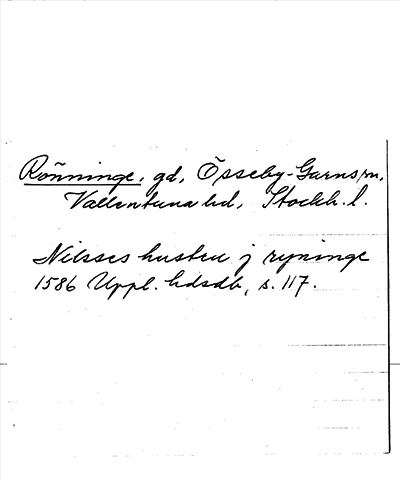 Rönninge, gd, Össeby-Garns sn,
Vallentuna hd, Stockh. l.
Nilsses hustru j ryninge
1586 Uppl. hdsdb, s. 117.